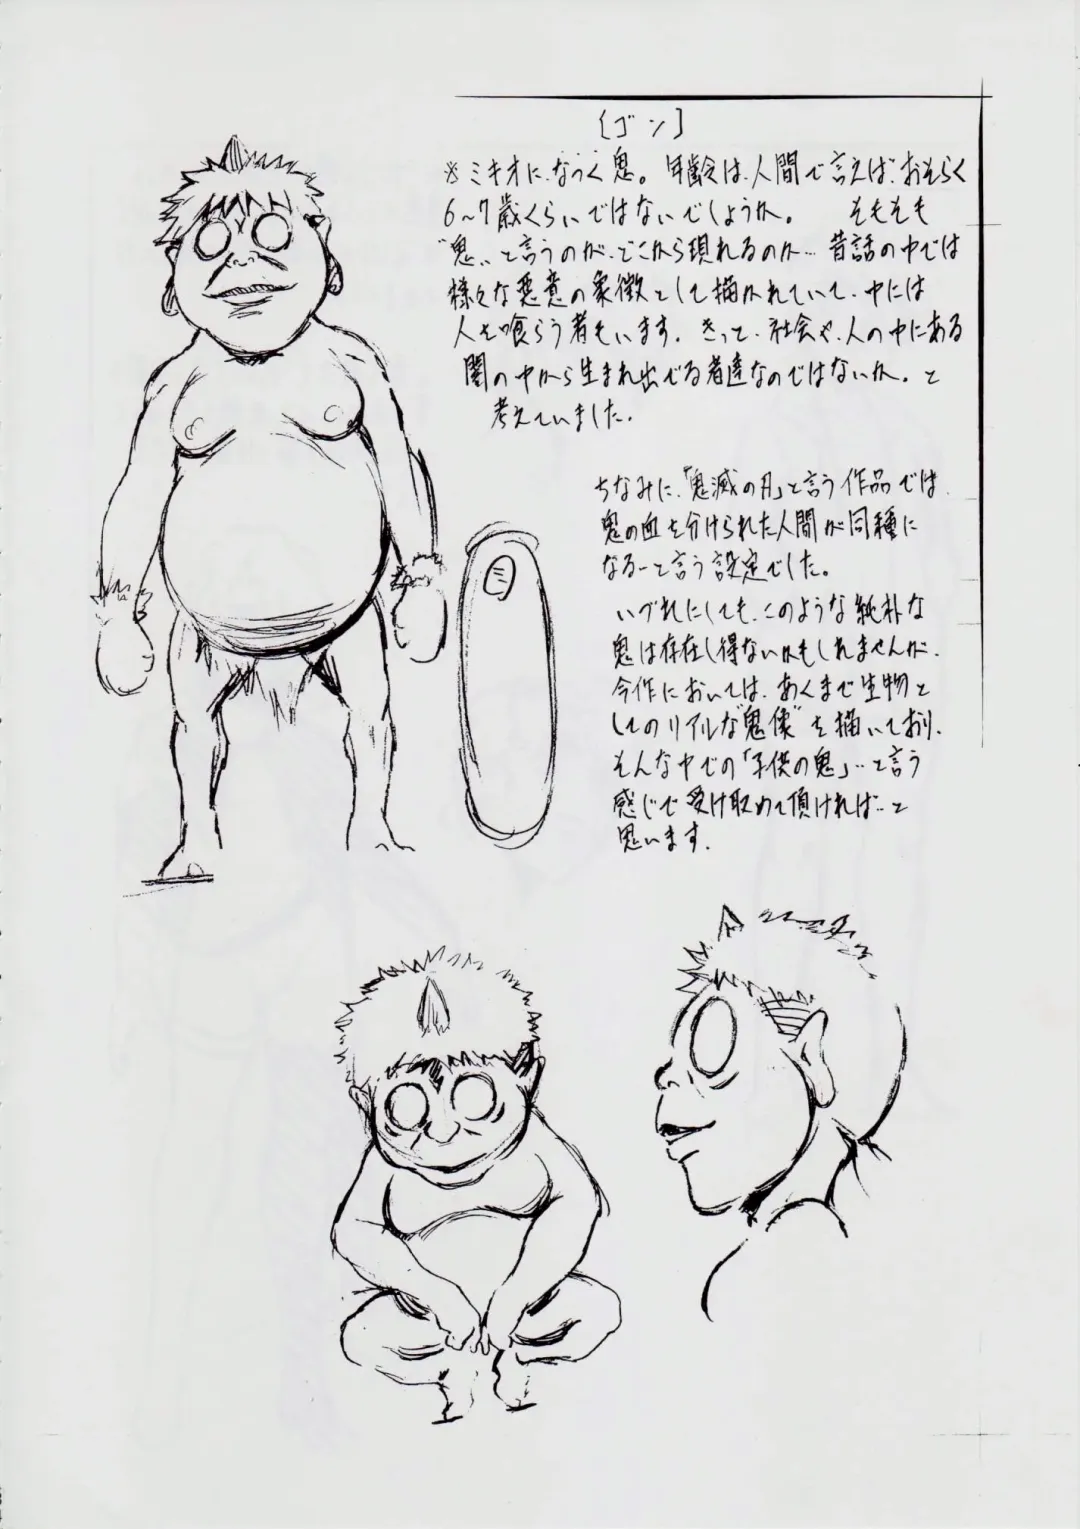 [ゴン]
※ミキオに、なつく鬼。年齢は、人間で言えば、おそらく
6〜7歳くらいではないでしょうか。 そもそも
"鬼"と言うのが、どこから現れるのか…昔話の中では
様々な悪意の象徴として描かれていて、中には
人を喰らう者もいます。きっと、社会や、人の中にある
闇の中から生まれ出でる者達なのではないか。と
考えていました。
ちなみに、「鬼滅の刃」と言う作品では、
鬼の血を分けられた人間が同種に
なる…と言う設定でした。
いづれにしても、このような純朴な
鬼は存在し得ないかもしれませんが、
今作においては、あくまで生物と
してのリアルな"鬼像"を描いており、
そんな中での「子供の鬼」…と言う
感じで受け取めて頂ければ…と
思います。